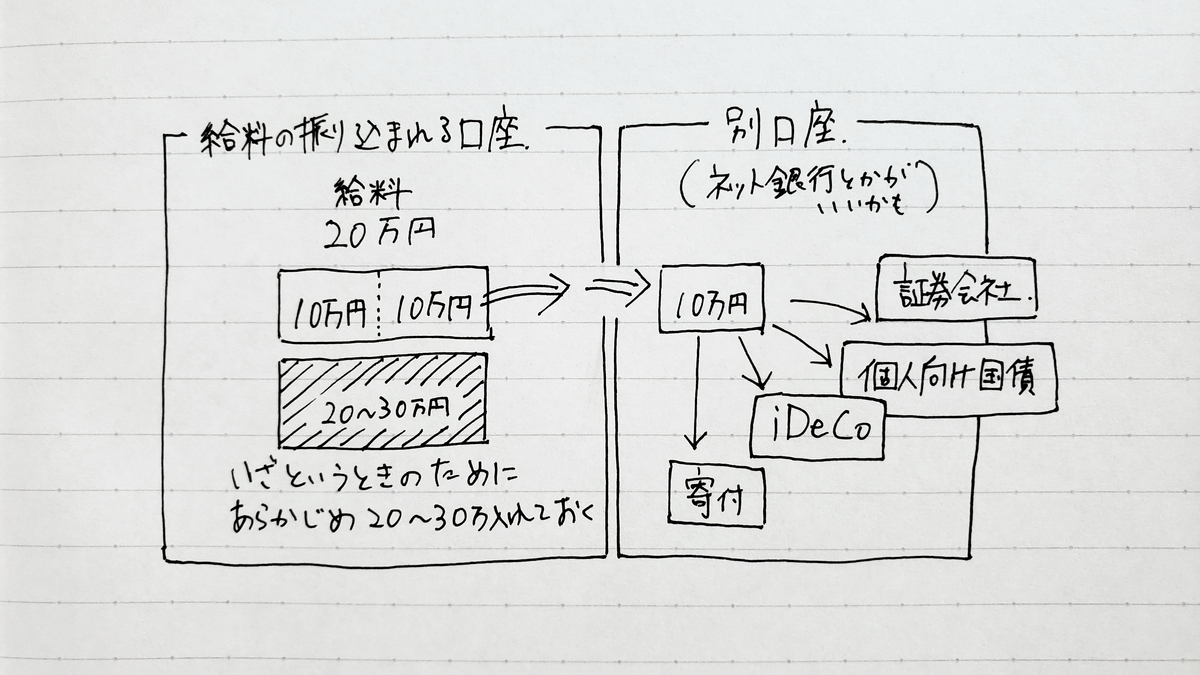 給料の振り込まれる口座.
給料
20万円
10万円 10万円
20〜30万円
いざというときのために
あらかじめ20〜30万入れておく
別口座.
(ネット銀行とかが
いいかも)
10万円
証券会社.
個人向け国債
iDeCo
寄付